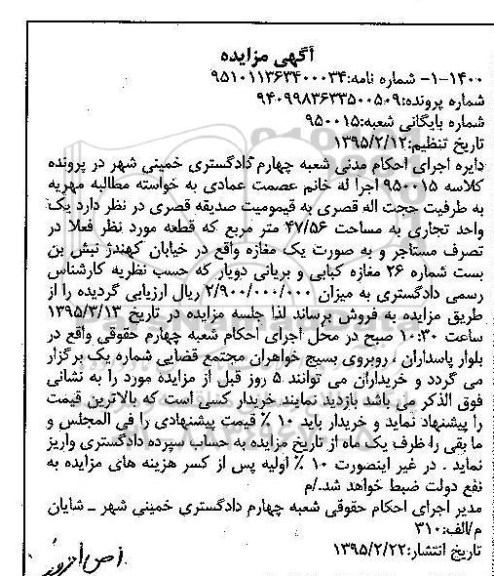 آگهی مزایده
۱-۱۴۰۰- شماره نامه:۹۵۱۰۱۱۳۶۳۴۰۰۰۳۴
شماره پرونده:۹۴۰۹۹۸۳۶۳۳۵۰۰۵۰۹
شماره بایگانی شعبه:۹۵۰۰۱۵
تاریخ تنظیم:۱۳۹۵/۲/۱۲
دایره اجرای احکام مدنی شعبه چهارم دادگستری خمینی شهر در پرونده
کلاسه ۹۵۰۰۱۵ اجرا له خانم عصمت عمادی به خواسته مطالبه مهریه
به طرفیت حجت اله قصری به قیمومیت صدیقه قصری در نظر دارد یک
واحد تجاری به مساحت ۴۷/۵۶ متر مربع که قطعه مورد نظر فعلا در
تصرف مستاجر و به صورت یک مغازه واقع در خیابان کهندژ نبش بن
بست شماره ۲۶ مغازه کبابی و بریانی دوپار که حسب نظریه کارشناس
رسمی دادگستری به میزان ۲/۹۰۰/۰۰۰/۰۰۰ ریال ارزیابی گردیده را از
طریق مزایده به فروش برساند لذا جلسه مزایده در تاریخ ۱۳۹۵/۳/۱۳
ساعت ۱۰:۳۰ صبح در محل اجرای احکام شعبه چهارم حقوقی واقع در
بلوار پاسداران ، روبروی بسیج خواهران مجتمع قضایی شماره یک برگزار
می گردد و خریداران می توانند ۵ روز قبل از مزایده مورد را به نشانی
فوق الذکر می باشد بازدید نمایند خریدار کسی است که بالاترین قیمت
را پیشنهاد نماید و خریدار باید ۱۰ ٪ قیمت پیشنهادی را فی المجلس و
ما بقی را ظرف یک ماه از تاریخ مزایده به حساب سپرده دادگستری واریز
نماید . در غیر اینصورت ۱۰ ٪ اولیه پس از کسر هزینه های مزایده به
نفع دولت ضبط خواهد شد./م
مدیر اجرای احکام حقوقی شعبه چهارم دادگستری خمینی شهر ــ شایان
م/الف:۳۱۰
تاریخ انتشار:۱۳۹۵/۲/۲۲